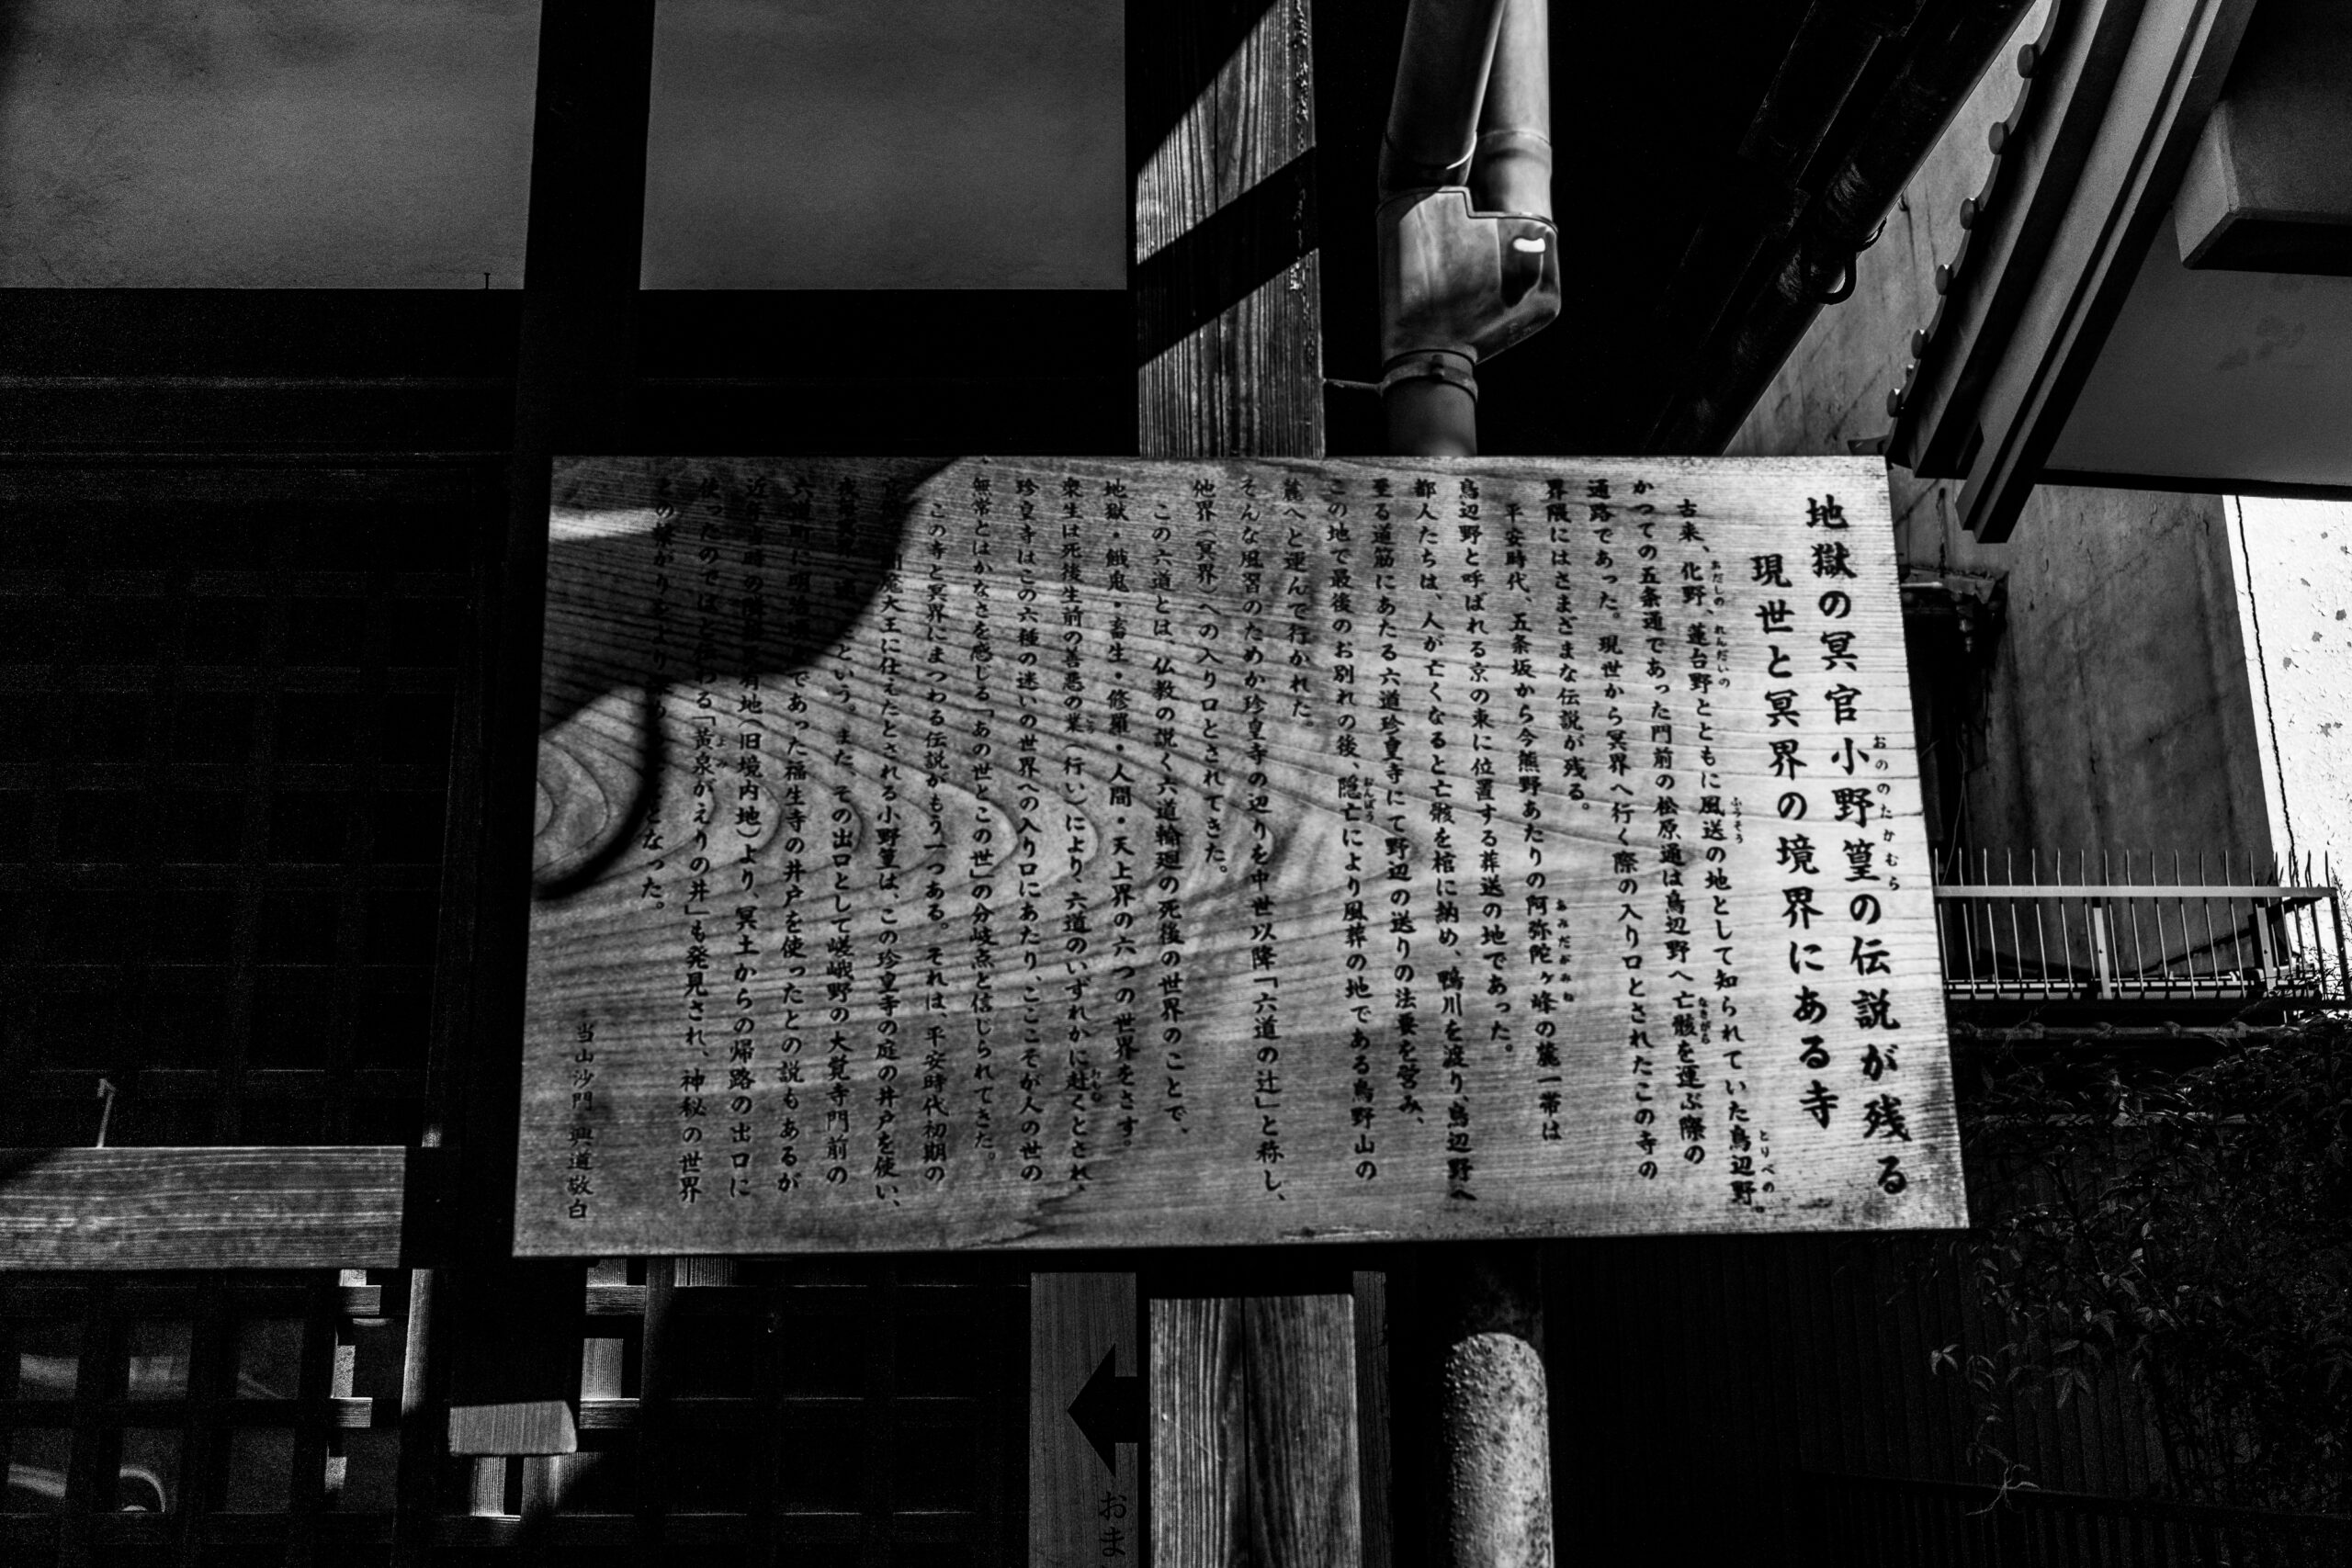 地獄の冥官小野篁の伝説が残る
おののたかむら
現世と冥界の境界にある寺
古来、化野、蓮台野とともに風送の地として知られていた鳥辺野。
あだしの れんだいの ふうそう とりべの
かつての五条通であった門前の松原通は鳥辺野へ亡骸を運ぶ際の
なきがら
通路であった。現世から冥界へ行く際の入り口とされたこの寺の
界隈にはさまざまな伝説が残る。
平安時代、五条坂から今熊野あたりの阿弥陀ヶ峰の麓一帯は
あみだがみね
鳥辺野と呼ばれる京の東に位置する葬送の地であった。
都人たちは、人が亡くなると亡骸を棺に納め、鴨川を渡り、鳥辺野へ
至る道筋にあたる六道珍皇寺にて野辺の送りの法要を営み、
この地で最後のお別れの後、隠亡により風葬の地である鳥野山の
おんぼう
麓へと運んで行かれた。
そんな風習のためか珍皇寺の辺りを中世以降「六道の辻」と称し、
他界（冥界）への入り口とされてきた。
この六道とは、仏教の説く六道輪廻の死後の世界のことで、
地獄・餓鬼・畜生・修羅・人間・天上界の六つの世界をさす。
衆生は死後生前の善悪の業（行い）により、六道のいずれかに赴くとされ、
ごう おもむ
珍皇寺はこの六種の迷いの世界への入り口にあたり、ここそが人の世の
無常とはかなさを感じる「あの世とこの世」の分岐点と信じられてきた。
この寺と冥界にまつわる伝説がもう一つある。それは、平安時代初期の
魔大王に仕えたとされる小野篁は、この珍皇寺の庭の井戸を使い、
という。また、その出口として嵯峨野の大覚寺門前の
六道町に明治であった福生寺の井戸を使ったとの説もあるが
近年当時の有地（旧境内地）より、冥土からの帰路の出口に
使ったのではと伝わる「黄泉がえりの井」も発見され、神秘の世界
よみ
との繋がりをより となった。
当山沙門 興道敬白
おま